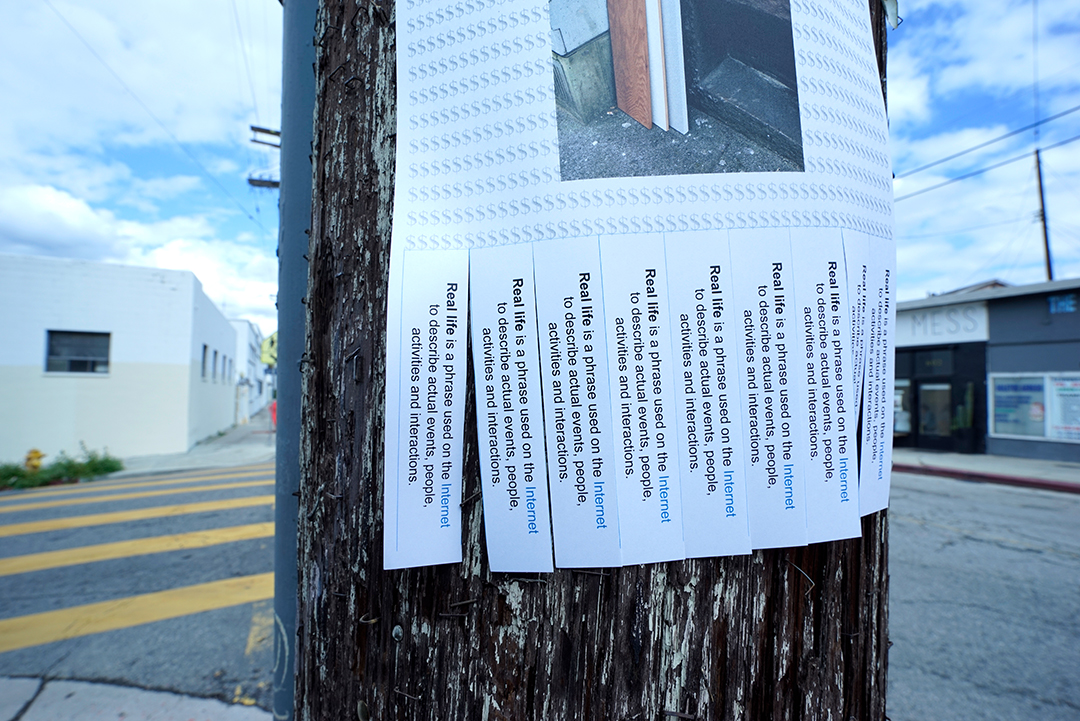 Real life is a phrase used on the Internet
to describe actual events, people,
activities and interactions.
Real life is a phrase used on the Internet
to describe actual events, people,
activities and interactions.
Real life is a phrase used on the Internet
to describe actual events, people,
activities and interactions.
Real life is a phrase used on the Internet
to describe actual events, people,
activities and interactions.
Real life is a phrase used on the Internet
to describe actual events, people,
activities and interactions.
Real life is a phrase used on the Internet
to describe actual events, people,
activities and interactions.
Real life is a phrase used on the Internet
to describe actual events, people,
activities and interactions.
Real life is a phrase used
Real life is a phrase used on the Internet
to describe actual events, people,
activities and interactions.
MESS
THE